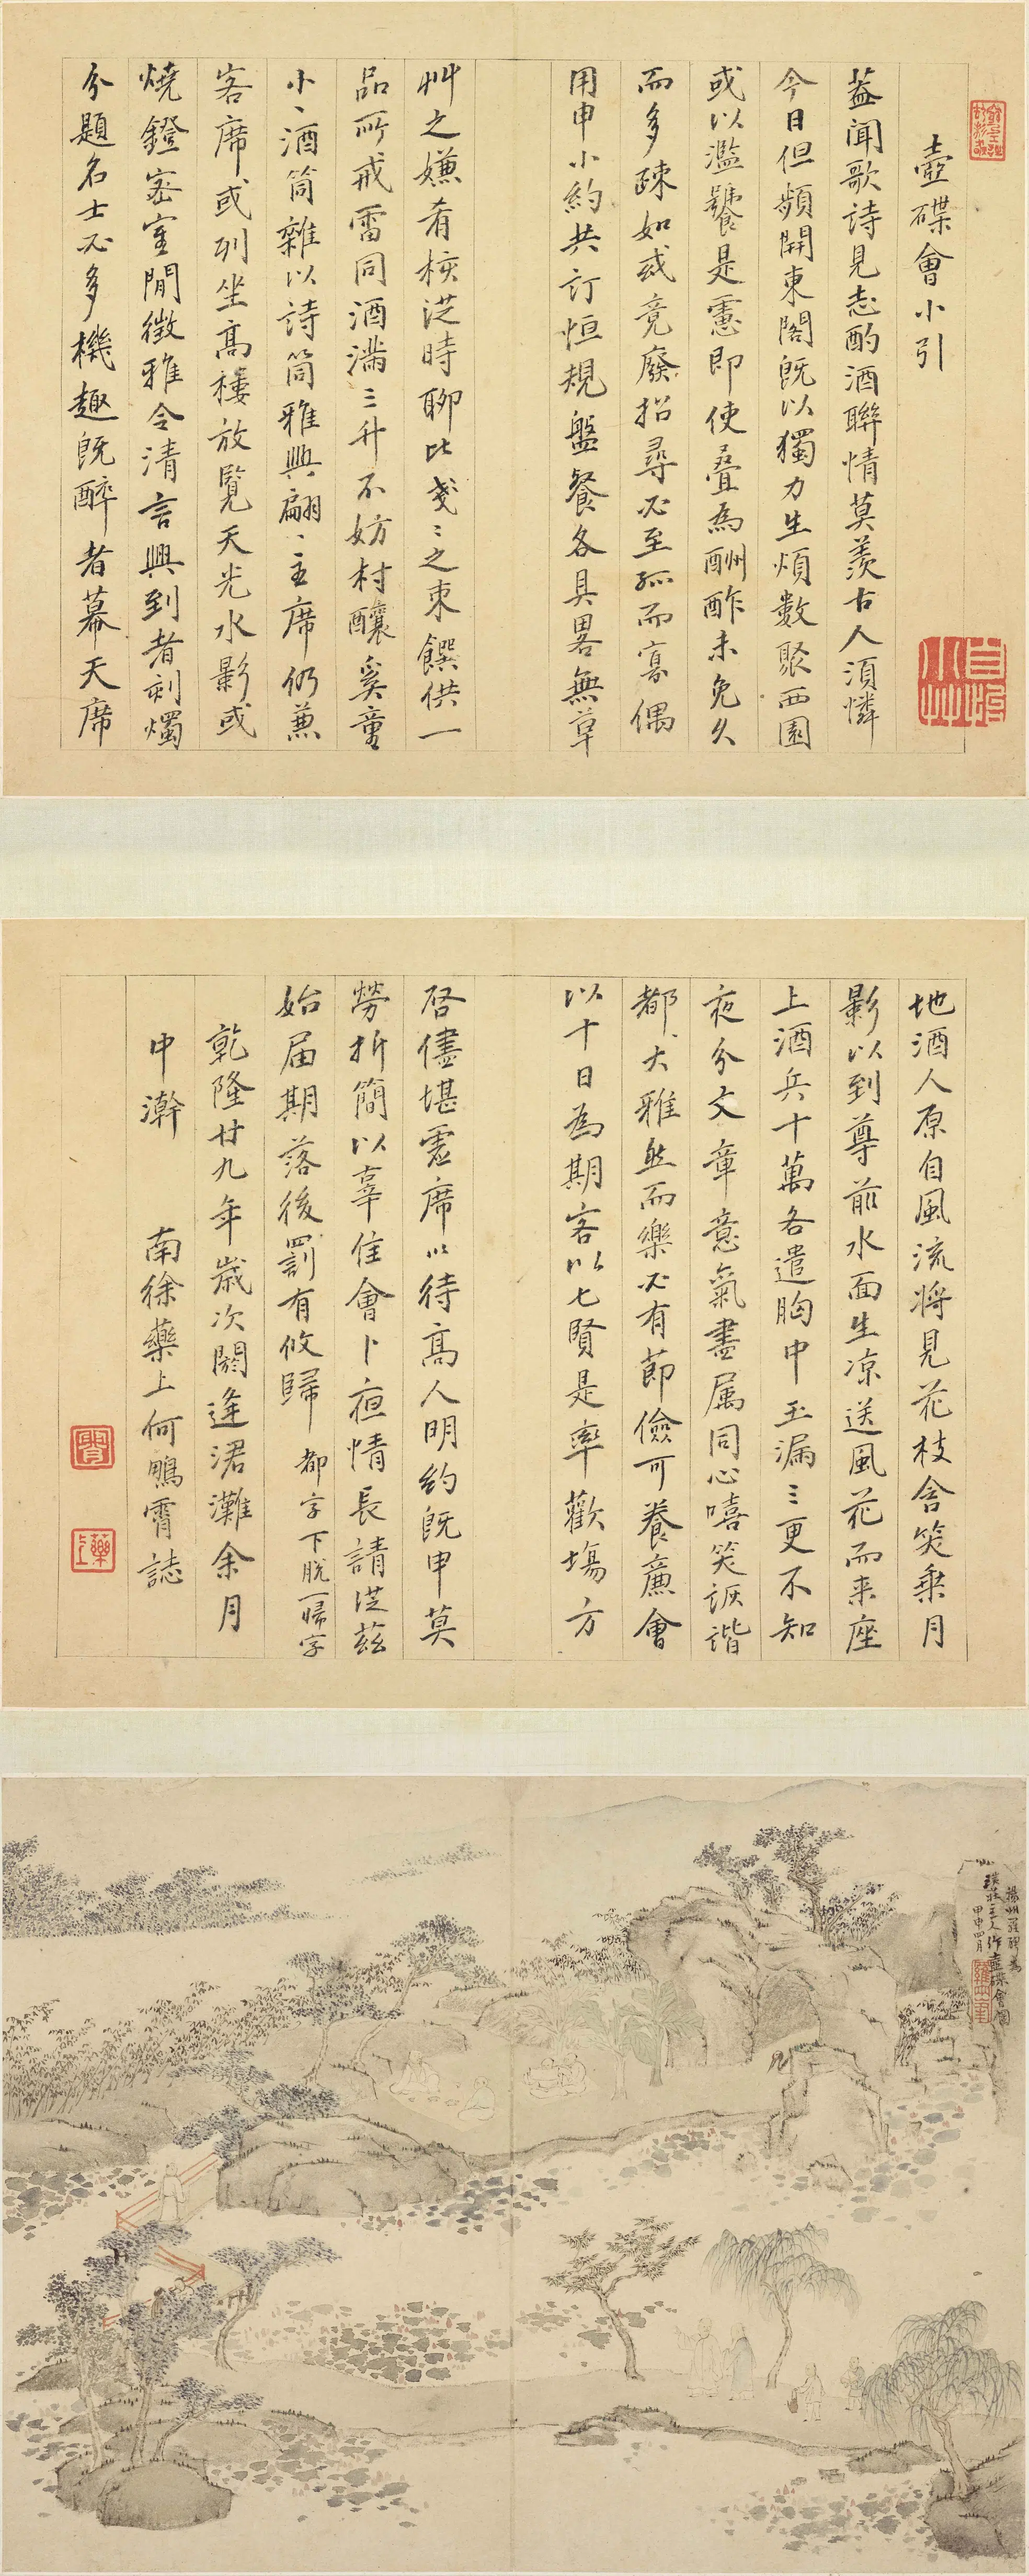 壺碟會小引
蓋聞歌詩見志酌酒聯情莫羨古人須憐
今日但頻開東閣既以獨力生煩數聚西園
或以濫饕是慮即使疊為酬酢未免久
而多疎如或竟廢招尋必至孤而寡偶
用申小約共訂恒規盤餐各具畧無草
艸之嫌肴核從時聊比戔〻之束饌供一
品所戒雷同酒滿三升不妨村釀奚童
小〻酒筒雜以詩筒雅興翩〻主席仍兼
客席或列坐高樓放覽天光水影或
燒鐙密室閒徵雅令清言興到者刻燭
分題名士必多機趣既醉者幕天席
地酒人原自風流將見花枝含笑乗月
影以到尊前水面生凉送風花而来座
上酒兵十萬各遣胸中玉漏三更不知
夜分文章意氣盡属同心嘻笑詼諧
都大雅然而樂必有節儉可養廉會
以十日為期客以七賢是率歡塲方
啓儘堪虛席以待高人明約既申莫
勞折簡以辜佳會卜夜情長請從茲
始届期落後罰有攸歸 都字下脫一歸字
乾隆廿九年歲次閼逢涒灘余月
中澣 南徐藥上何鵬霄誌
霄
藥上
揚州羅聘為
主人作壺碟會圖
甲申四月